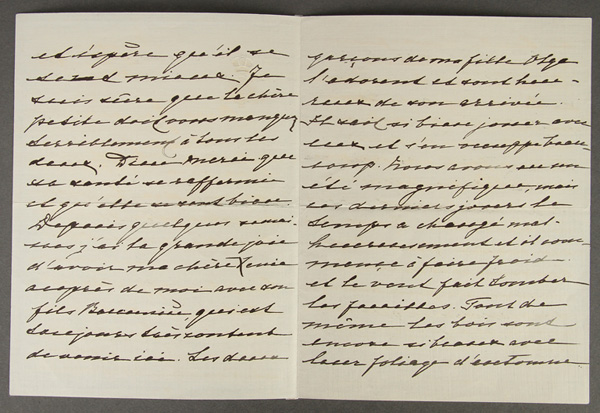 et j'espère qu'il se
sent mieux. Je
suis sûre que la chère
petite doit vous manquer
terriblement à tous les
deux. Dieu merci que
sa santé se raffermie
et qu'elle se sent bien.
Depuis quelques semai-
nes j'ai la grande joie
d'avoir ma chère Xenie
auprès de moi avec son
fils qui est
toujours très content
de venir ici. Les deux
garçons de ma fille Olga
l'adorent et sont heu-
reux de son arrivée.
Il sait si bien jouer avec
eux et s'en occuppe beau-
coup. Nous avons eu un
été magnifique, mais
ces derniers jours le
temps a changé mal-
heureusement et il com-
mence à faire froid
et le vent fait tomber
les feuilles. Tout de
même les bois sont
encore si beaux avec
leur foliage d'automne